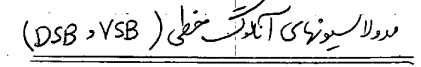 مدولاسیونهای آنالوگ خطی (DSB و VSB)